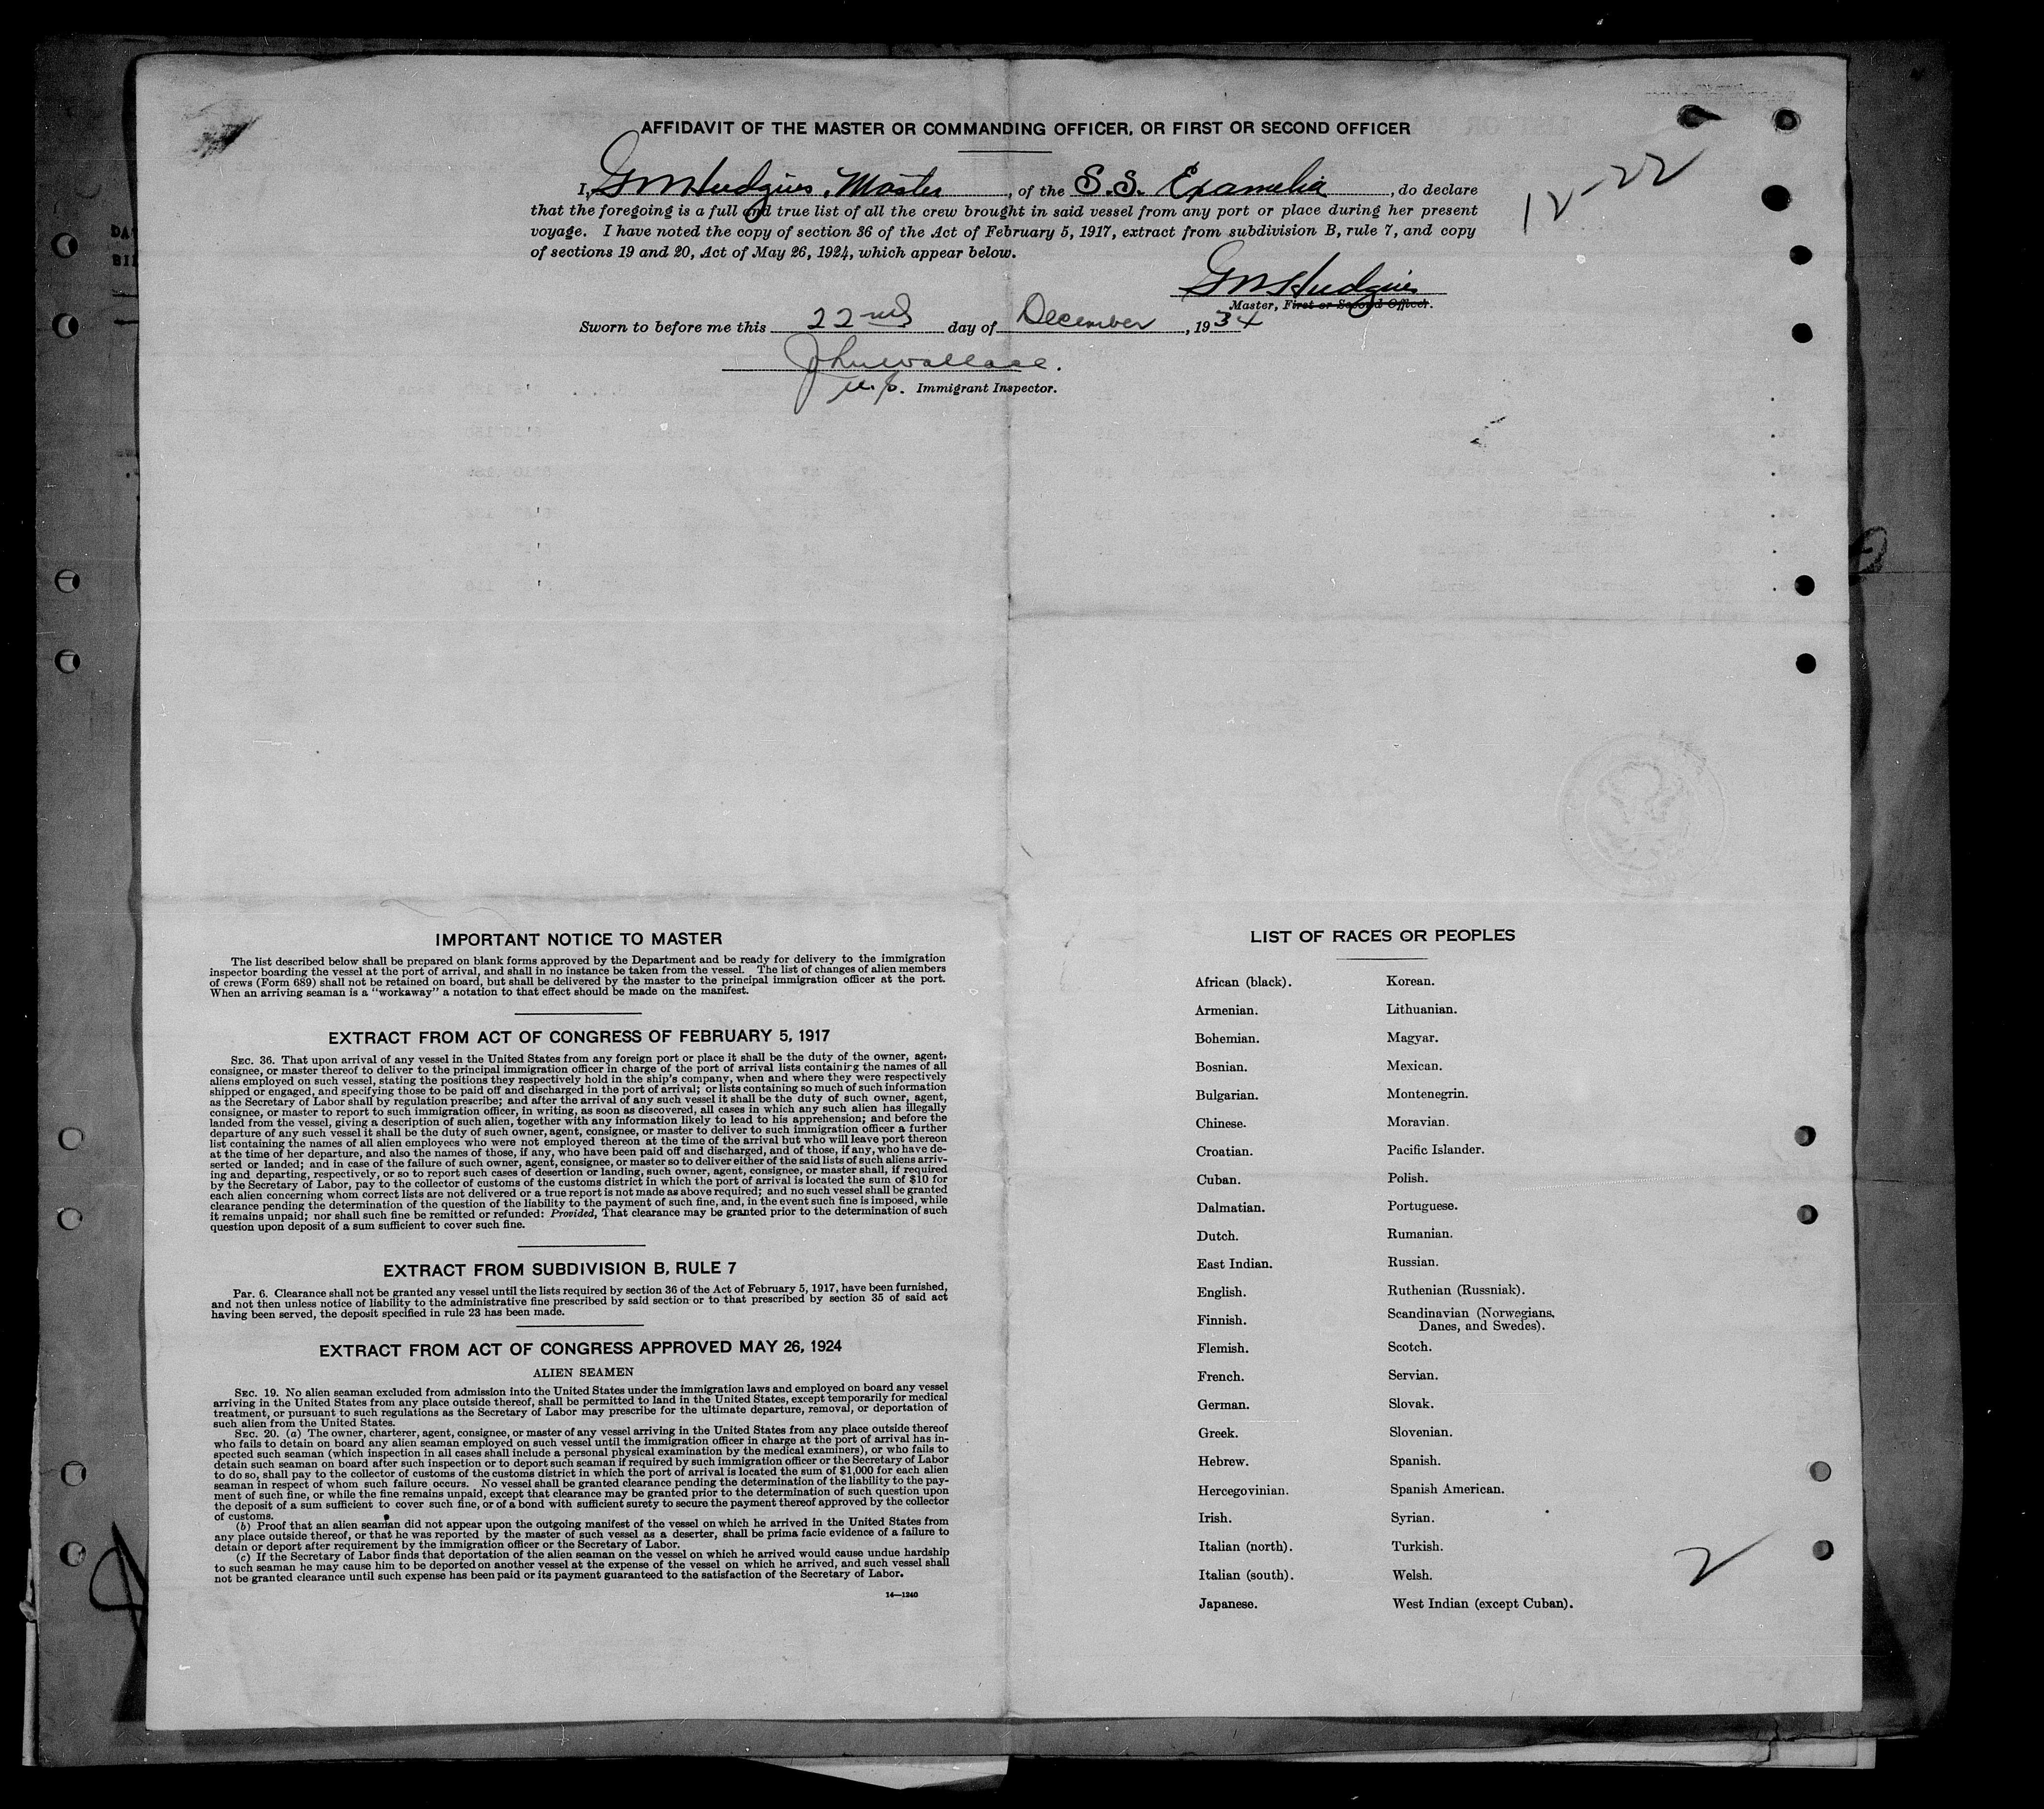 AFFIDAVIT OF THE MASTER OR COMMANDING OFFICER, OR FIRST OR SECOND OFFICER
I, G M Hudgins, Master, of the S.S. Examelia, do declare
that the foregoing is a full and true list of all the crew brought in said vessel from any port or place during her present
voyage. I have noted the copy of section 36 of the Act of February 5, 1917, extract from subdivision B, rule 7, and copy
of sections 19 and 20, Act of May 26, 1924, which appear below.
12-22
G M Hudgins
Master, First or Second Officer.
Sworn to before me this 22nd day of December, 1934
John Wallace.
Immigrant Inspector.
IMPORTANT NOTICE TO MASTER
The list described below shall be prepared on blank forms approved by the Department and be ready for delivery to the immigration
inspector boarding the vessel at the port of arrival, and shall in no instance be taken from the vessel. The list of changes of alien members
of crews (Form 689) shall not be retained on board, but shall be delivered by the master to the principal immigration officer at the port.
When an arriving seaman is a "workaway" a notation to that effect should be made on the manifest.
EXTRACT FROM ACT OF CONGRESS OF FEBRUARY 5, 1917
SEC. 36. That upon arrival of any vessel in the United States from any foreign port or place it shall be the duty of the owner, agent,
consignee, or master thereof to deliver to the principal immigration officer in charge of the port of arrival lists containing the names of all
aliens employed on such vessel, stating the positions they respectively hold in the ship's company, when and where they were respectively
shipped or engaged, and specifying those to be paid off and discharged in the port of arrival; or lists containing so much of such information
as the Secretary of Labor shall by regulation prescribe; and after the arrival of any such vessel it shall be the duty of such owner, agent,
consignee, or master to report to such immigration officer, in writing, as soon as discovered, all cases in which any such alien has illegally
landed from the vessel, giving a description of such alien, together with any information likely to lead to his apprehension; and before the
departure of any such vessel it shall be the duty of such owner, agent, consignee, or master to deliver to such immigration officer a further
list containing the names of all alien employees who were not employed thereon at the time of the arrival but who will leave port thereon
at the time of her departure, and also the names of those, if any, who have been paid off and discharged, and of those, if any, who have de-
serted or landed; and in case of the failure of such owner, agent, consignee, or master so to deliver either of the said lists of such aliens arriv-
ing and departing, respectively, or so to report such cases of desertion or landing, such owner, agent, consignee, or master shall, if required
by the Secretary of Labor, pay to the collector of customs of the customs district in which the port of arrival is located the sum of $10 for
each alien concerning whom correct lists are not delivered or a true report is not made as above required; and no such vessel shall be granted
clearance pending the determination of the question of the liability to the payment of such fine, and, in the event such fine is imposed, while
it remains unpaid; nor shall such fine be remitted or refunded: Provided, That clearance may be granted prior to the determination of such
question upon deposit of a sum sufficient to cover such fine.
EXTRACT FROM SUBDIVISION B, RULE 7
PAR. 6. Clearance shall not be granted any vessel until the lists required by section 36 of the Act of February 5, 1917, have been furnished,
and not then unless notice of liability to the administrative fine prescribed by said section or to that prescribed by section 35 of said act
having been served, the deposit specified in rule 23 has been made.
EXTRACT FROM ACT OF CONGRESS APPROVED MAY 26, 1924
ALIEN SEAMEN
SEC. 19. No alien seaman excluded from admission into the United States under the immigration laws and employed on board any vessel
arriving in the United States from any place outside thereof, shall be permitted to land in the United States, except temporarily for medical
treatment, or pursuant to such regulations as the Secretary of Labor may prescribe for the ultimate departure, removal, or deportation of
such alien from the United States.
SEC. 20. (a) The owner, charterer, agent, consignee, or master of any vessel arriving in the United States from any place outside thereof
who fails to detain on board any alien seaman employed on such vessel until the immigration officer in charge at the port of arrival has in-
spected such seaman (which inspection in all cases shall include a personal physical examination by the medical examiners), or who fails to
detain such seaman on board after such inspection or to deport such seaman if required by such immigration officer or the Secretary of Labor
to do so, shall pay to the collector of customs of the customs district in which the port of arrival is located the sum of $1,000 for each alien
seaman in respect of whom such failure occurs. No vessel shall be granted clearance pending the determination of the liability to the pay-
ment of such fine, or while the fine remains unpaid, except that clearance may be granted prior to the determination of such question upon
the deposit of a sum sufficient to cover such fine, or of a bond with sufficient surety to secure the payment thereof approved by the collector
of customs.
(b) Proof that an alien seaman did not appear upon the outgoing manifest of the vessel on which he arrived in the United States from
any place outside thereof, or that he was reported by the master of such vessel as a deserter, shall be prima facie evidence of a failure to
detain or deport after requirement by the immigration officer or the Secretary of Labor.
(c) If the Secretary of Labor finds that deportation of the alien seaman on the vessel on which he arrived would cause undue hardship
to such seaman he may cause him to be deported on another vessel at the expense of the vessel on which he arrived, and such vessel shall
not be granted clearance until such expense has been paid or its payment guaranteed to the satisfaction of the Secretary of Labor.
14—1240
LIST OF RACES OR PEOPLES
African (black).
Armenian.
Bohemian.
Bosnian.
Bulgarian.
Chinese.
Croatian.
Cuban.
Dalmatian.
Dutch.
East Indian.
English.
Finnish.
Flemish.
French.
German.
Greek.
Hebrew.
Hercegovinian.
Irish.
Italian (north).
Italian (south).
Japanese.
Korean.
Lithuanian.
Magyar.
Mexican.
Montenegrin.
Moravian.
Pacific Islander.
Polish.
Portuguese.
Rumanian.
Russian.
Ruthenian (Russniak).
Scandinavian (Norwegians,
Danes, and Swedes).
Scotch.
Servian.
Slovak.
Slovenian.
Spanish.
Spanish American.
Syrian.
Turkish.
Welsh.
West Indian (except Cuban).
2